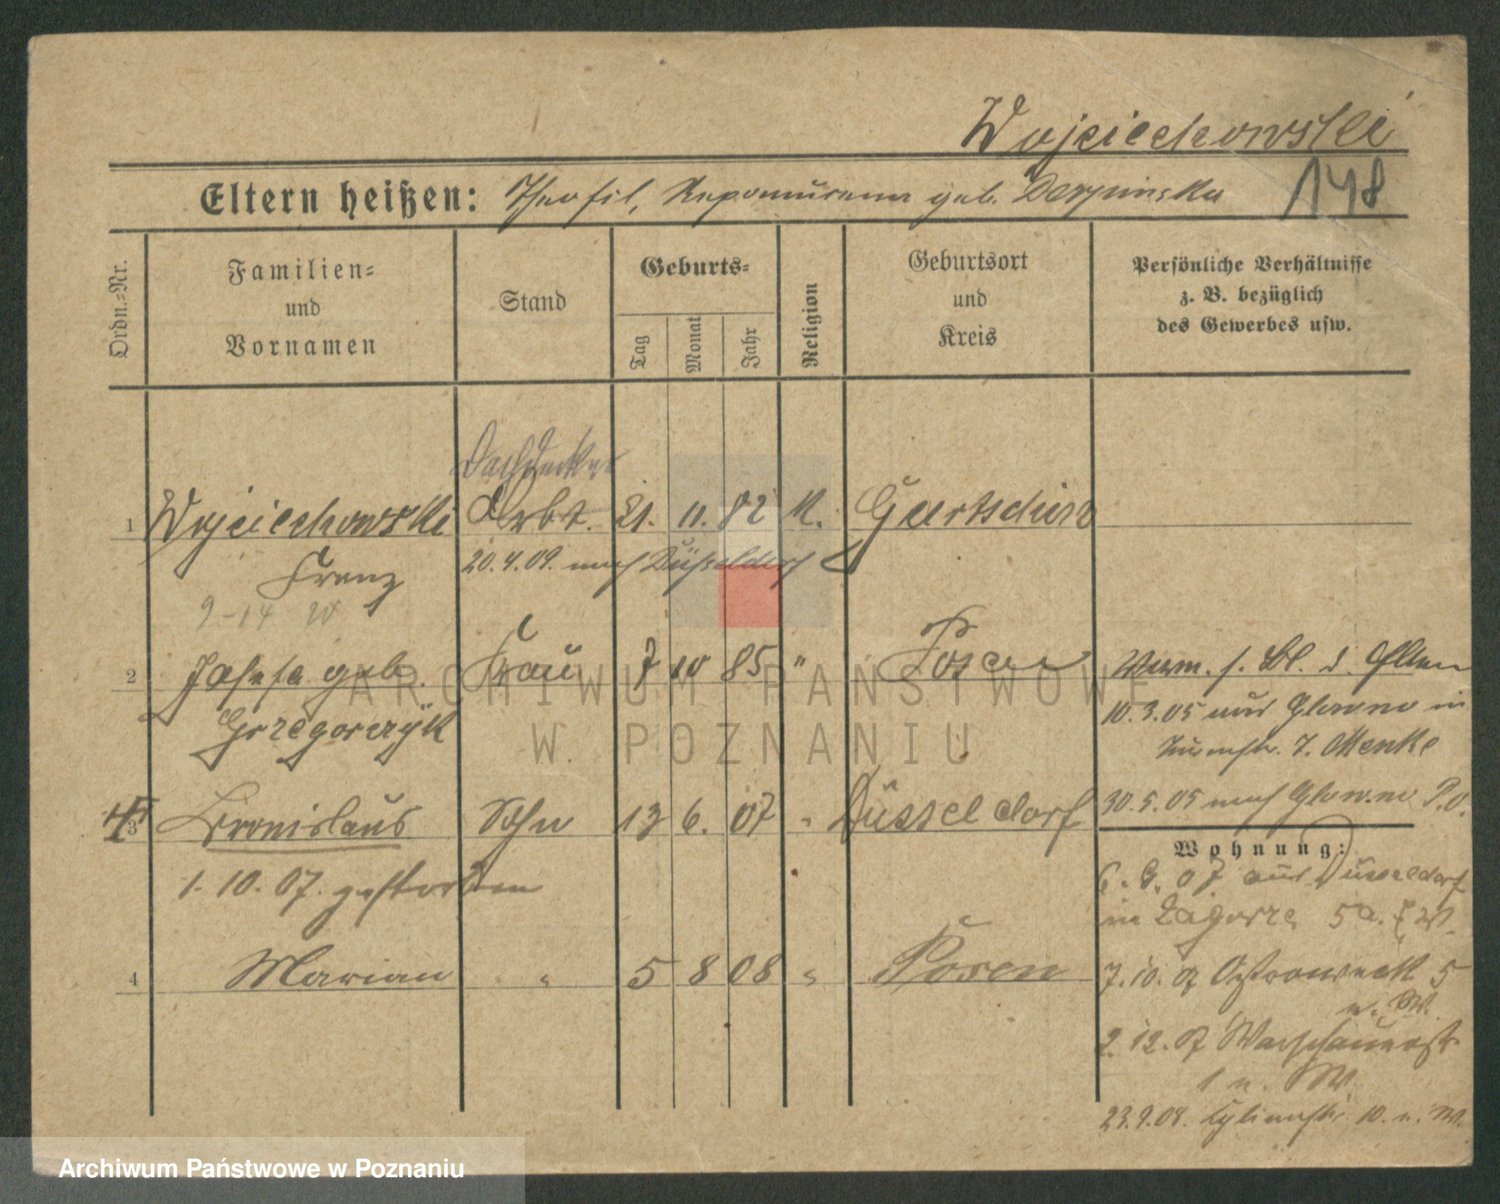 Wojciechowski
Eltern heißen: Theofil, Nepomucena geb. Derpinska
148
Ordn.=Nr.
Familien=
und
Vornamen
Stand
Geburts=
Tag
Monat
Jahr
Religion
Geburtsort
und
Kreis
Persönliche Verhältnisse
z. B. bezüglich
des Gewerbes usw.
Dachdecker
1 Wojciechowski Arbt. 21. 11. 82 K. Gurtschin
Franz 20.4.09. nach Düsseldorf
9-14 W
2 Josefa geb. Frau 7 10 85 " Posen
Grzegorczyk
10.3.05 aus Glowno in
J. Menke
30.5.05 nach Glowno P.O.
3 Bronislaus Sohn 13 6. 07 " Düsseldorf
1. 10. 07. gestorben
4 Marian " 5 8 08 " Posen
Wohnung:
6. 9. 07 aus Düsseldorf
in Zagorze 5a. W.
7.10.07 Ostrowek 5
n. W.
2.12.07 Warschauerstr
1 n. W
23.9.08. 10. n. W.
ARCHIWUM PAŃSTWOWE
W POZNANIU
Archiwum Państwowe w Poznaniu